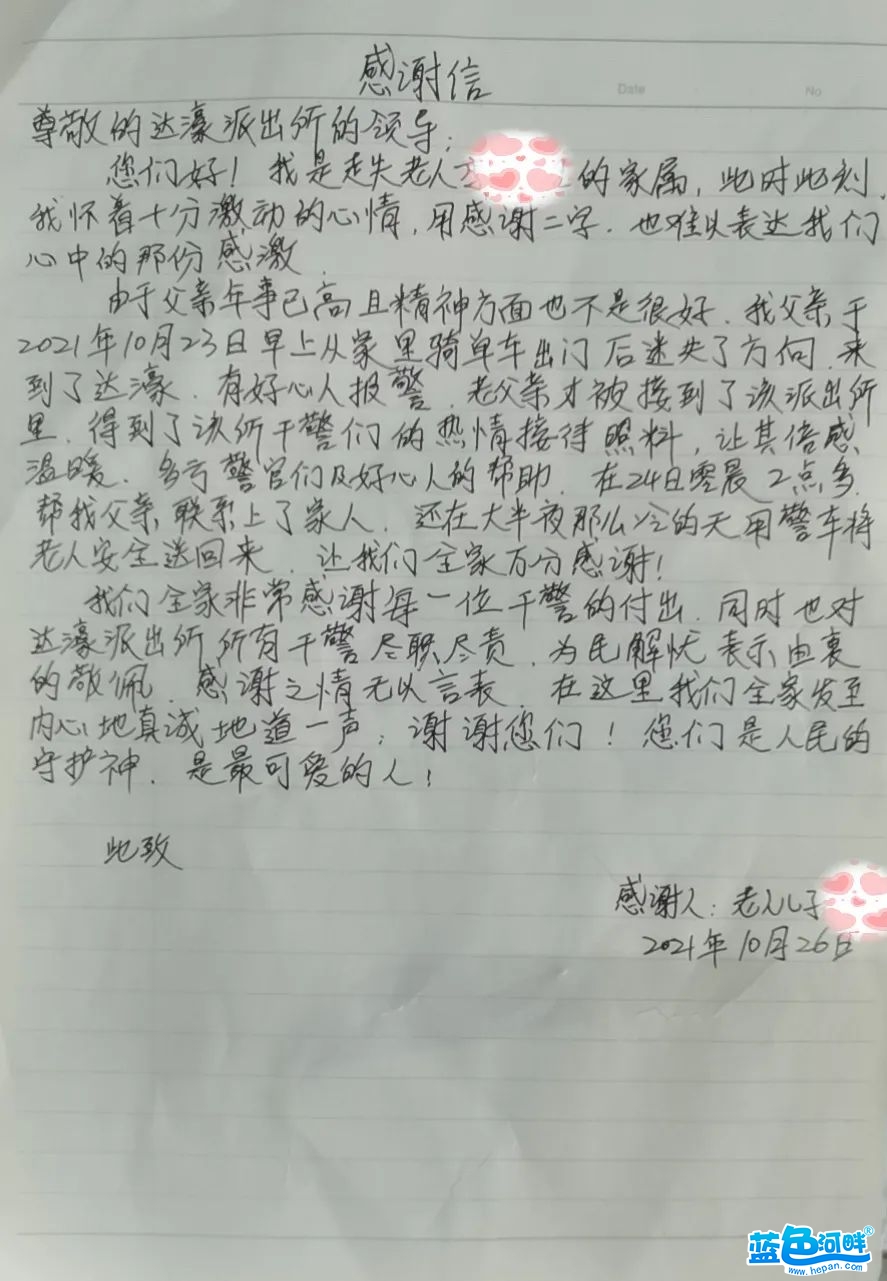 感谢信
Date
No
尊敬的达濠派出所的领导：
您们好！我是走失老人的家属，此时此刻，
我怀着十分激动的心情，用感谢二字，也难以表达我们
心中的那份感激，
由于父亲年事已高且精神方面也不是很好，我父亲于
2021年10月23日早上从家里骑单车出门后迷失了方向，来
到了达濠，有好心人报警，老父亲才被接到了该派出所
里，得到了该所干警们的热情接待照料，让其倍感
温暖，多亏警官们及好心人的帮助，在24日零晨2点多，
帮我父亲联系上了家人，还在大半夜那么冷的天用警车将
老人安全送回来，让我们全家万分感谢！
我们全家非常感谢每一位干警的付出，同时也对
达濠派出所所有干警尽职尽责，为民解忧表示由衷
的敬佩，感谢之情无以言表，在这里我们全家发至
内心地真诚地道一声：谢谢您们！您们是人民的
守护神，是最可爱的人！
此致
感谢人：老人儿子
2021年10月26日
蓝色河畔®
www.hepan.com